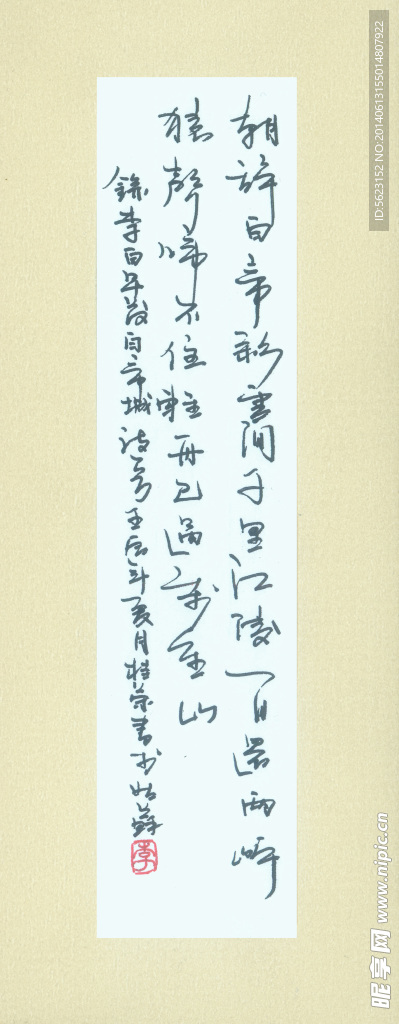 朝辞白帝彩雲間千里江陵一日還兩岸
猿聲啼不住輕舟已過萬重山
錄李白早發白帝城詩一首壬辰年夏月桂榮書於姑蘇
李
ID:5623152 NO:20140613155014807922
昵享网 www.nipic.cn